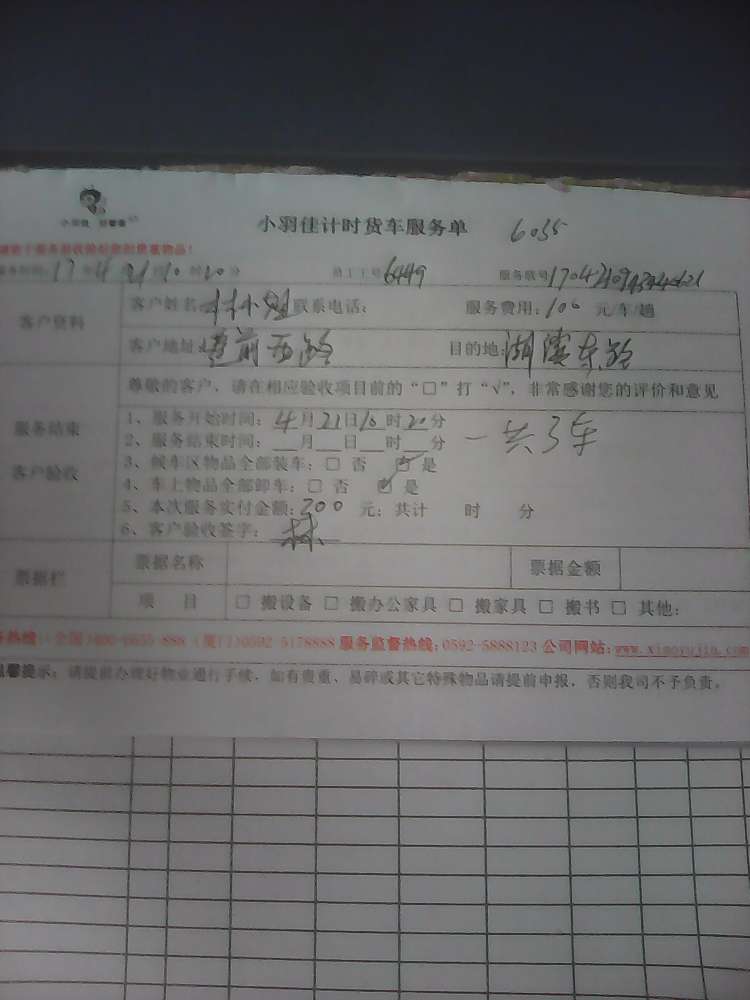 小羽佳
小羽佳计时货车服务单 6035
17年4 21 10时20分 员工工号6449 服务歌号
客户资料
客户姓名: 林小 联系电话: 服务费用:100 元/车/趟
客户地址: 前西路 目的地:湖滨东路
尊敬的客户，请在相应验收项目前的“□”打“√”，非常感谢您的评价和意见
服务结束
客户验收
1、服务开始时间：4月21日10时20分
2、服务结束时间：__月__日__时__分
一共3车
3、候车区物品全部装车：□ 否 ☑ 是
4、车上物品全部卸车：□ 否 ☑ 是
5、本次服务实付金额：300 元；共计 时 分
6、客户验收签字： 林
票据栏
票据名称 票据金额
项 目 □ 搬设备 □ 搬办公家具 □ 搬家具 □ 搬书 □ 其他：
务热线：（全国）400-6655-888（厦门）0592-5178888 服务监督热线：0592-5888123 公司网站：www.xiaoyujia.com
温馨提示：请提前办理好物业通行手续，如有贵重、易碎或其它特殊物品请提前申报，否则我司不予负责。